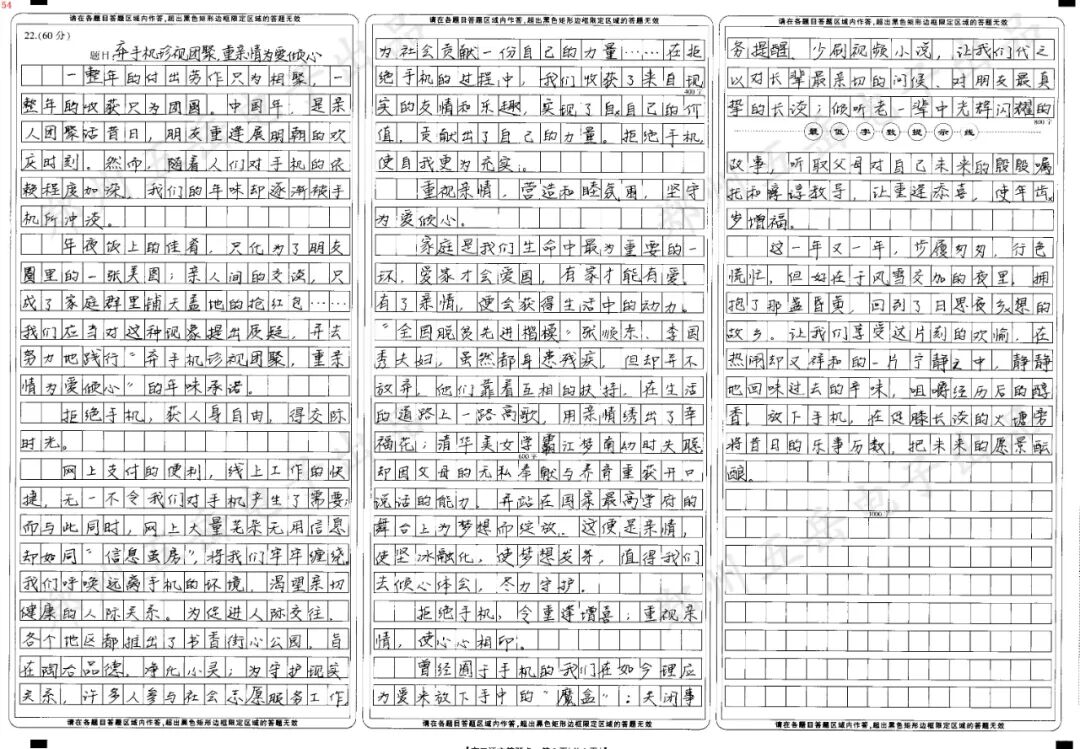 54
请在各题目答题区域内作答,超出黑色矩形边框限定区域的答题无效
22.(60分)
题目 弃手机珍视团聚,重亲情为爱倾心
一整年的付出劳作只为相聚,一
整年的收获只为团圆。中国年,是亲
人团聚话昔日,朋友重逢展明朝的欢
庆时刻。然而,随着人们对手机的依
赖程度加深,我们的年味却逐渐被手
机所冲淡。
年夜饭上的佳肴,只化为了朋友
圈里的一张美图;亲人间的交谈,只
成了家庭群里铺天盖地的抢红包……
我们应当对这种现象提出质疑,并去
努力地践行“弃手机珍视团聚,重亲
情为爱倾心”的年味承诺。
拒绝手机,获人身自由,得交际
时光。
网上支付的便利,线上工作的快
捷,无一不令我们对手机产生了需要;
而与此同时,网上大量芜杂无用信息
却如同“信息茧房”,将我们牢牢缠绕。
我们呼唤远离手机的环境,渴望亲切
健康的人际关系。为促进人际交往,
各个地区都推出了书香街心公园,旨
在陶冶品德,净化心灵;为守护现实
关系,许多人参与社会志愿服务工作,
请在各题目答题区域内作答,超出黑色矩形边框限定区域的答题无效
请在各题目答题区域内作答,超出黑色矩形边框限定区域的答题无效
为社会贡献一份自己的力量……在拒
绝手机的过程中,我们收获了来自现
400字
实的友情和乐趣,实现了自己的价
值,贡献出了自己的力量。拒绝手机,
使自我更为充实。
重视亲情,营造和睦氛围,坚守
为爱倾心。
家庭是我们生命中最为重要的一
环,爱家才会爱国,有家才能有爱。
有了亲情,便会获得生活中的动力。
“全国脱贫先进楷模”张顺东、李国
秀夫妇,虽然都身患残疾,但却并不
放弃,他们靠着互相的扶持,在生活
的道路上一路高歌,用亲情绣出了幸
福花;清华美女学霸江梦南幼时失聪
600字
却因父母的无私奉献与养育重获开口
说话的能力,并站在国家最高学府的
舞台上为梦想而绽放。这便是亲情,
使坚冰融化,使梦想发芽,值得我们
去倾心体会,尽力守护。
拒绝手机,令重逢增喜;重视亲
情,使心心相印。
曾经囿于手机的我们在如今理应
为爱来放下手中的“魔盒”:关闭事
请在各题目答题区域内作答,超出黑色矩形边框限定区域的答题无效
请在各题目答题区域内作答,超出黑色矩形边框限定区域的答题无效
务提醒、少刷视频小说,让我们代之
以对长辈最亲切的问候、对朋友最真
挚的长谈;倾听老一辈中光辉闪耀的
800字
最低字数提示线
故事,听取父母对自己未来的殷殷嘱
托和谆谆教导,让重逢添喜,使年齿
岁增福。
这一年又一年,步履匆匆,行色
慌忙,但好在于风雪交加的夜里,拥
抱了那盏昏黄,回到了日思夜想的
故乡。让我们享受这片刻的欢愉,在
热闹却又祥和的一片宁静之中,静静
地回味过去的年味,咀嚼经历后的醇
香,放下手机,在促膝长谈的火塘旁
将昔日的乐事历数,把未来的愿景酝
酿。
1000字
请在各题目答题区域内作答,超出黑色矩形边框限定区域的答题无效